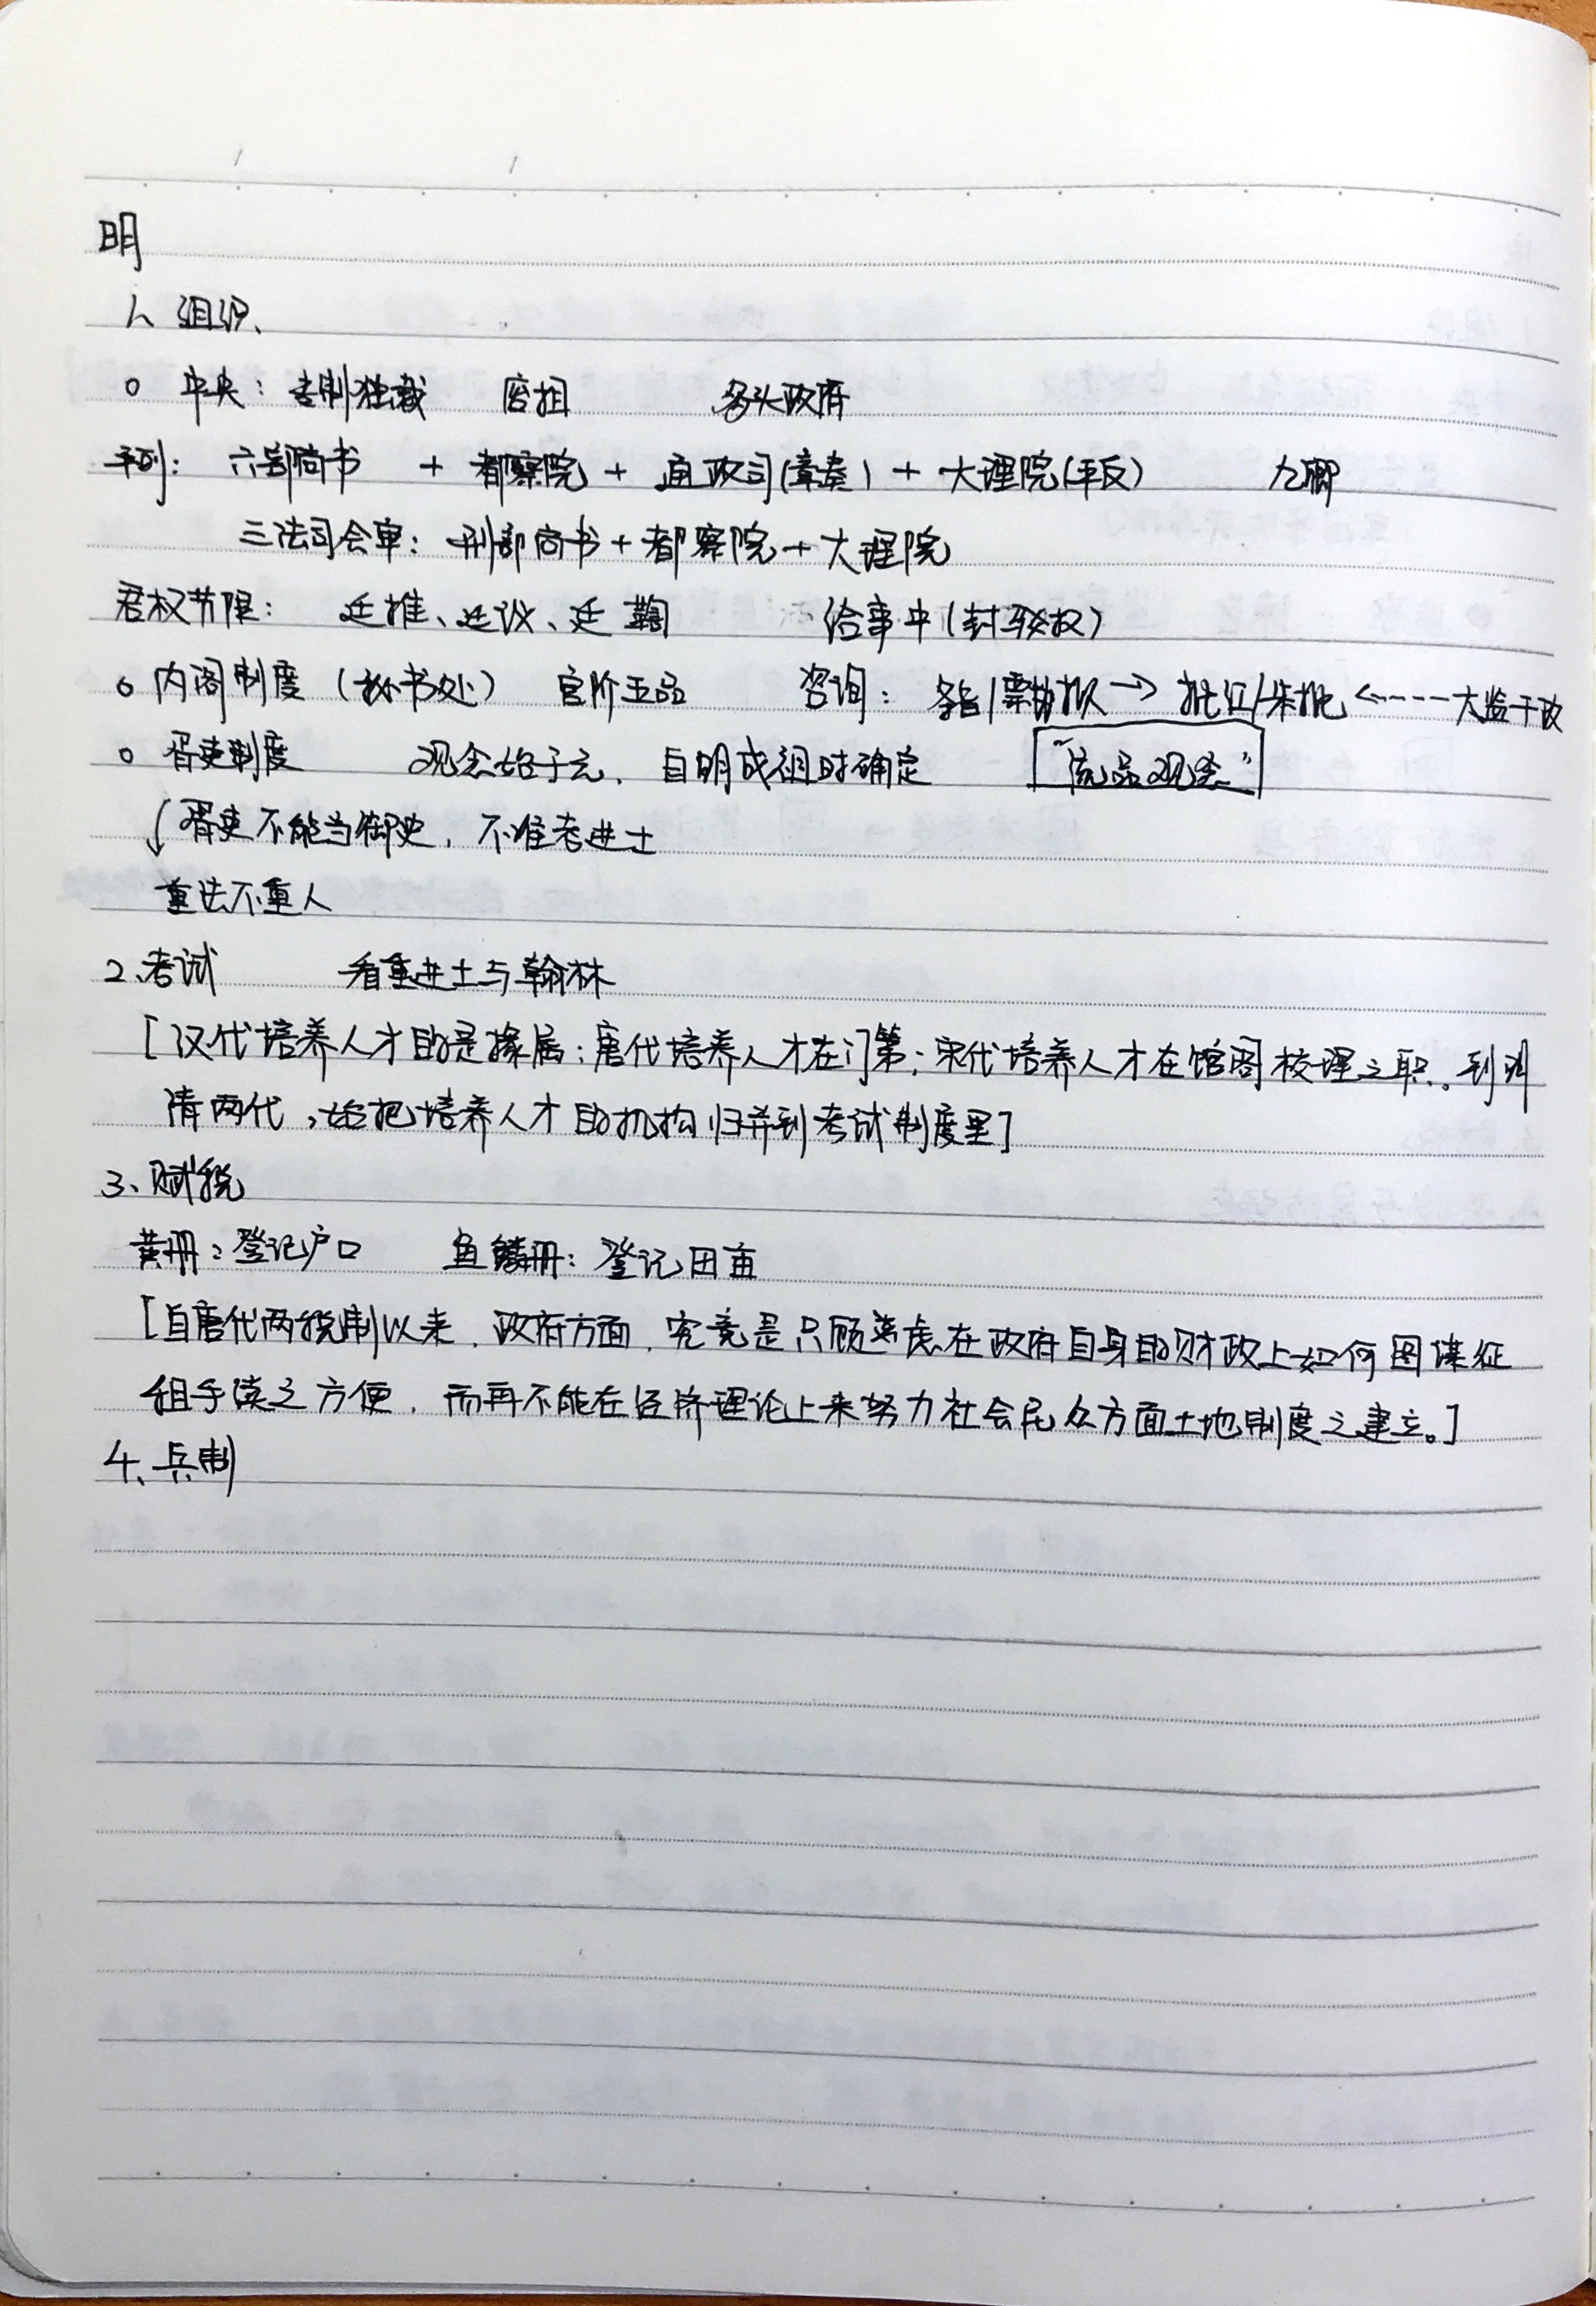 明
1、组织、
○ 中央：专制独裁 废相 多头政府
平列：六部尚书 + 都察院 + 通政司(章奏) + 大理院(平反) 九卿
三法司会审：刑部尚书 + 都察院 + 大理院
君权节限：廷推、廷议、廷鞫 给事中(封驳权)
○ 内阁制度（秘书处） 官阶五品 咨询：条旨/票拟 → 批红/朱批 ←---- 太监干政
○ 胥吏制度 观念始于元，自明成祖时确定 “流品观念”
↓ 胥吏不能当御史，不准考进士
重法不重人
2、考试 看重进士与翰林
[汉代培养人才的是掾属；唐代培养人才在门第；宋代培养人才在馆阁校理之职。到明
清两代，始把培养人才的机构归并到考试制度里]
3、赋税
黄册：登记户口 鱼鳞册：登记田亩
[自唐代两税制以来，政府方面，究竟是只顾考虑在政府自身的财政上如何图谋征
租手续之方便，而再不能在经济理论上来努力社会民众方面土地制度之建立。]
4、兵制